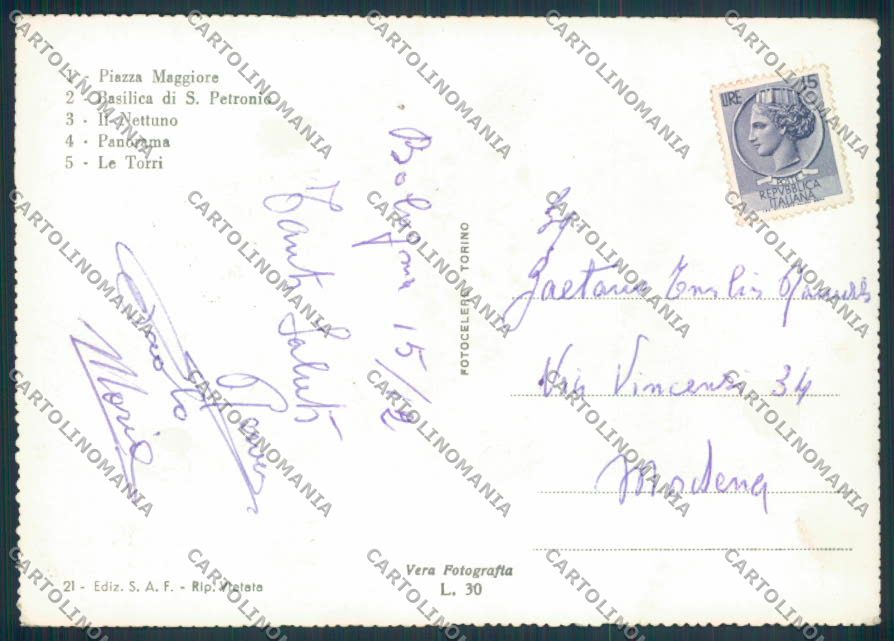 1 - Piazza Maggiore
2 - Basilica di S. Petronio
3 - Il Nettuno
4 - Panorama
5 - Le Torri
Bologna 15/12
Tanti Saluti
Maria
FOTOCELERE - TORINO
LIRE 15
POSTE
REPVBBLICA
ITALIANA
Gaetano Emilio
Via Vincenzi 34
Modena
21 - Ediz. S. A. F. - Rip. Vietata
Vera Fotografia
L. 30
CARTOLINOMANIA